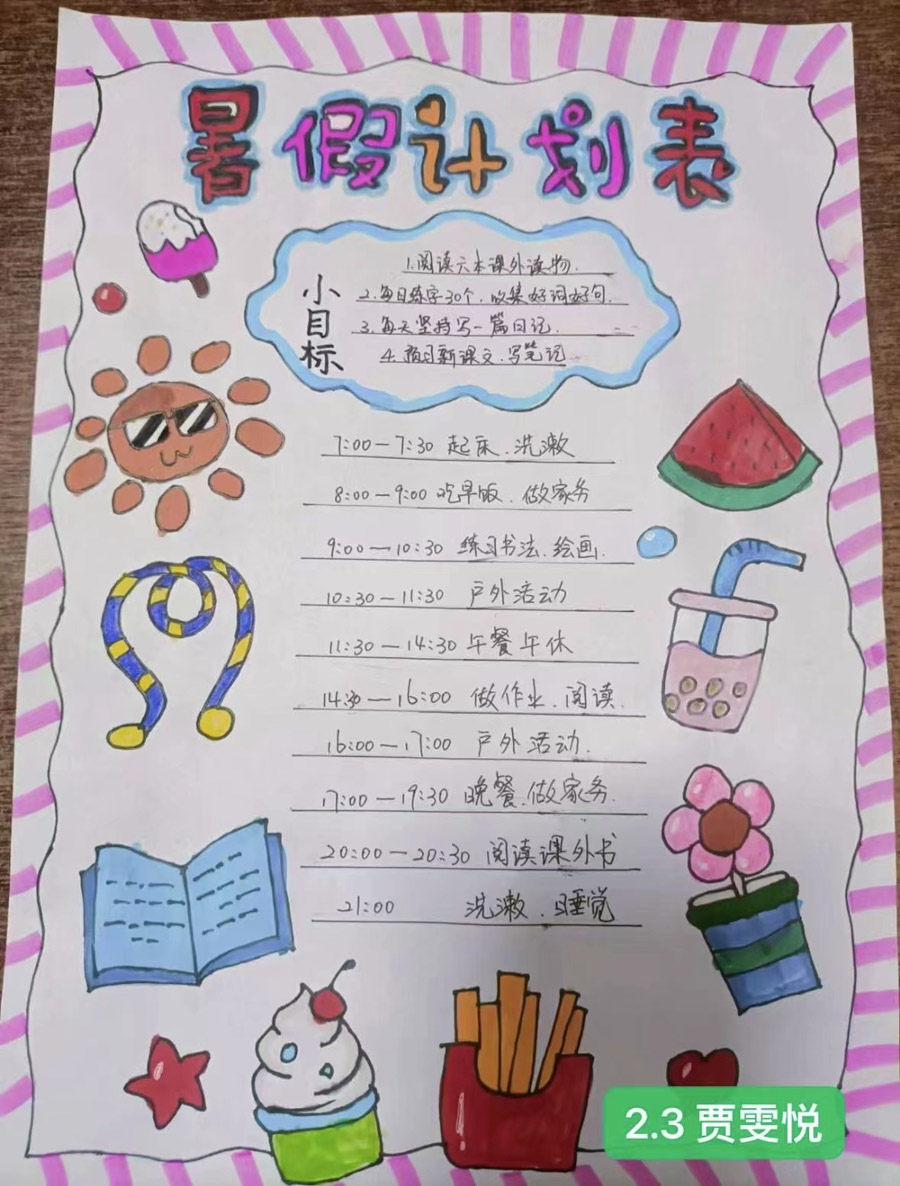 暑假计划表
小目标
1.阅读六本课外读物.
2.每日练字30个.收集好词好句.
3.每天坚持写一篇日记.
4.预习新课文.写笔记
7:00—7:30 起床.洗漱
8:00—9:00 吃早饭.做家务
9:00—10:30 练习书法.绘画.
10:30—11:30 户外活动
11:30—14:30 午餐午休
14:30—16:00 做作业.阅读.
16:00—17:00 户外活动.
17:00—19:30 晚餐.做家务.
20:00—20:30 阅读课外书
21:00 洗漱.睡觉
2.3 贾雯悦